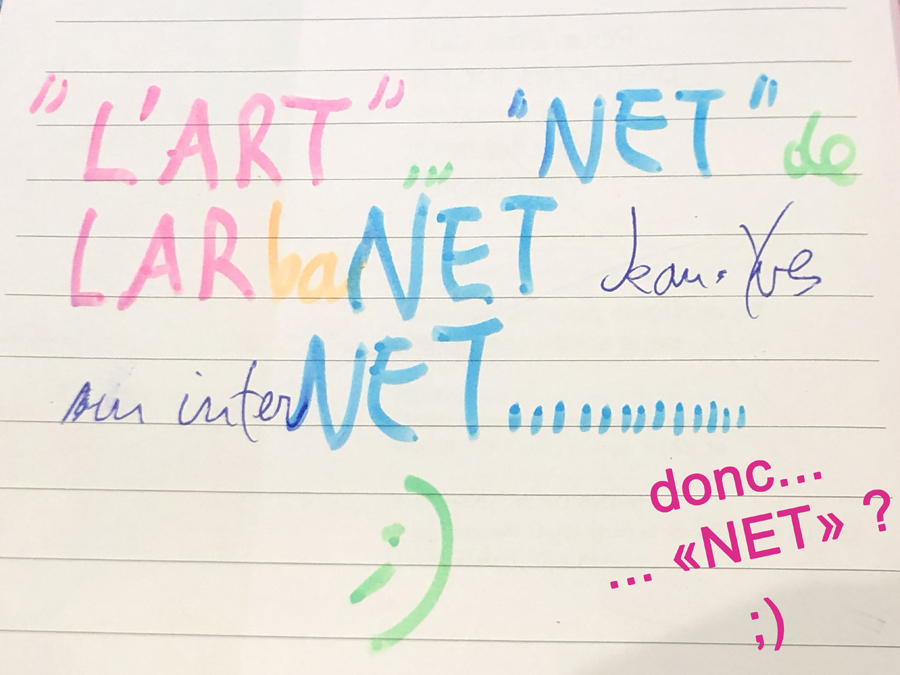 "L'ART" ... "NET" de
LARbaNET Jean-Yves
sur interNET..............
;)
donc...
... «NET» ?
;)